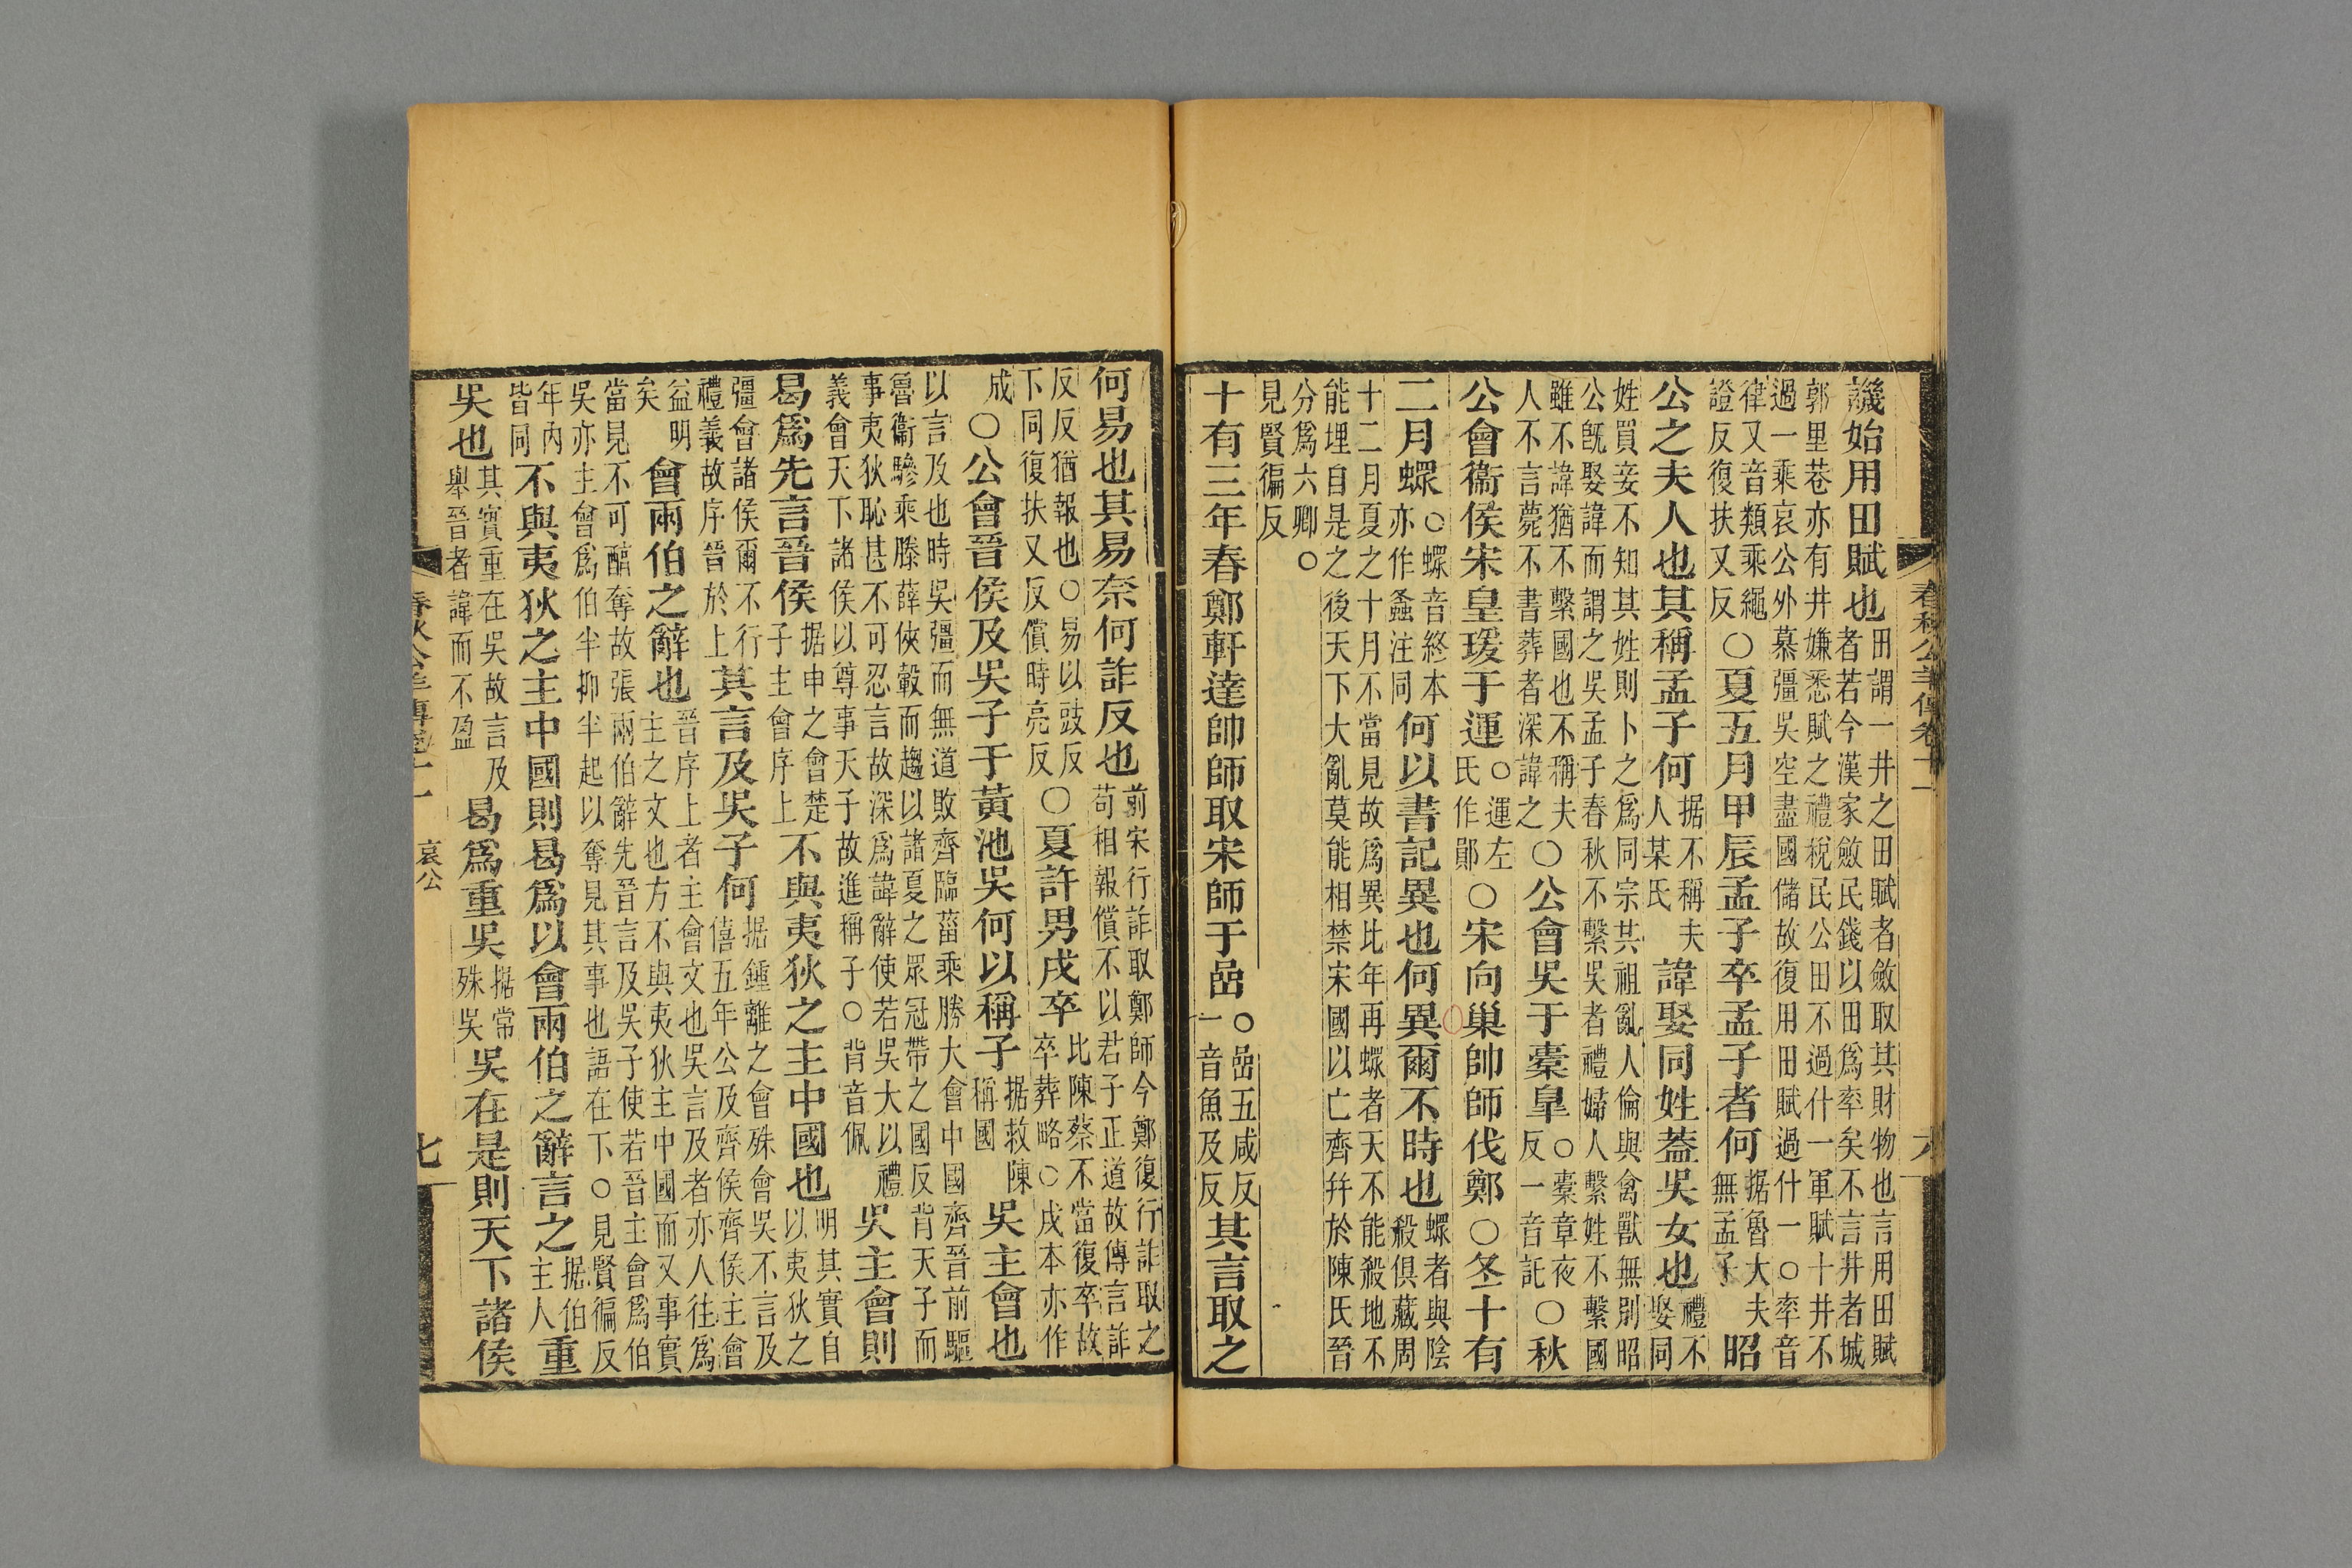 春秋公羊傳卷十一
六
譏始用田賦也田謂一井之田賦者斂取其財物也言用田賦
者若今漢家斂民錢以田爲率矣不言井者城
郭里巷亦有井嫌悉賦之禮稅民公田不過什一軍賦十井不
過一乘哀公外慕彊吳空盡國儲故復用田賦過什一○率音
律又音類乘繩
證反復扶又反○夏五月甲辰孟子卒孟子者何据魯大夫無孟子昭
公之夫人也其稱孟子何据不稱夫人某氏諱娶同姓蓋吳女也禮不娶同
姓買妾不知其姓則卜之爲同宗共祖亂人倫與禽獸無別昭
公旣娶諱而謂之吳孟子春秋不繫吳者禮婦人繫姓不繫國
雖不諱猶不繫國也不稱夫
人不言薨不書葬者深諱之○公會吳于橐皐○橐章夜反一音託○秋
公會衞侯宋皇瑗于運○運左氏作鄖○宋向巢帥師伐鄭○冬十有
二月䗥○䗥音終本亦作螽注同何以書記異也何異爾不時也䗥者與陰殺俱藏周
十二月夏之十月不當見故爲異比年再䗥者天不能殺地不
能埋自是之後天下大亂莫能相禁宋國以亡齊幷於陳氏晉
分爲六卿○
見賢徧反
十有三年春鄭軒達帥師取宋師于嵒○嵒五咸反一音魚及反其言取之
何易也其易奈何詐反也前宋行詐取鄭師今鄭復行詐取之
苟相報償不以君子正道故傳言詐
反反猶報也○易以豉反
下同復扶又反償時亮反○夏許男戌卒比陳蔡不當復卒故卒葬略○戌本亦作
成○公會晉侯及吳子于黃池吳何以稱子据救陳稱國吳主會也
以言及也時吳彊而無道敗齊臨菑乘勝大會中國齊晉前驅
魯衞驂乘滕薛俠轂而趨以諸夏之眾冠帶之國反背天子而
事夷狄恥甚不可忍言故深爲諱辭使若吳大以禮
義會天下諸侯以尊事天子故進稱子○背音佩吳主會則
曷爲先言晉侯据申之會楚子主會序上不與夷狄之主中國也明其實自以夷狄之
彊會諸侯爾不行
禮義故序晉於上其言及吳子何据鍾離之會殊會吳不言及僖五年公及齊侯齊侯主會
益明矣會兩伯之辭也晉序上者主會文也吳言及者亦人往爲
主之文也方不與夷狄主中國而又事實
當見不可醕奪故張兩伯辭先晉言及吳子使若晉主會爲伯
吳亦主會爲伯半抑半起以奪見其事也語在下○見賢徧反
年內皆同不與夷狄之主中國則曷爲以會兩伯之辭言之据伯主人重
吳也其實重在吳故言及舉晉者諱而不盈曷爲重吳据常殊吳吳在是則天下諸侯
春秋公羊傳卷十一
哀公
七